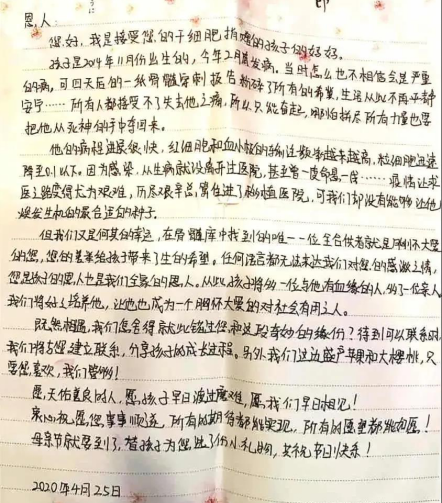 恩人:
您好,我是接受您的干细胞捐赠的孩子的妈妈。
孩子是2014年11月份出生的,今年2月发病。当时怎么也不相信会是严重
的病,可四天后的一纸骨髓穿刺报告粉碎了所有的希冀,生活从此不再平静
安宁……所有人都接受不了失去他之痛,所以只能奋起,哪怕拼尽所有力量也要
把他从死神的手中夺回来。
他的病程进展很快,红细胞和血小板的输注频率越来越高,粒细胞迅速
降至0.1以下。因为感染,从生病就没离开过医院,甚至曾一度命悬一线……疫情让求
医之路变得尤为艰难,历尽艰辛总算住进了移植医院,可我们却没有能够让他
但我们又是何其的幸运,在骨髓库中找到的唯一一位全合供者就是胸怀大爱
的您,您的慈善给孩子带来了生的希望。任何语言都无法表达我们对您的感激之情,
您是孩子的恩人也是我们全家的恩人。从此,孩子将多一位与他有血缘的人,多了一位亲人
我们将好好培养他,让他也成为一个胸怀大爱的对社会有用之人。
既然相遇,我们怎舍得就此错过您和这段奇妙的缘份?待到可以联系时,
我们将与您建立联系,分享孩子的成长过程。另外我们这边盛产苹果和大樱桃,只
要您喜欢,我们管够!
愿天佑善良的人,愿孩子早日渡过魔难,愿我们早日相见!
衷心祝愿您事事顺遂,所有的期待都能实现,所有的愿望都能如愿!
母亲节就要到了,替孩子为您送了份小礼物,并祝节日快乐!
2020年4月25日